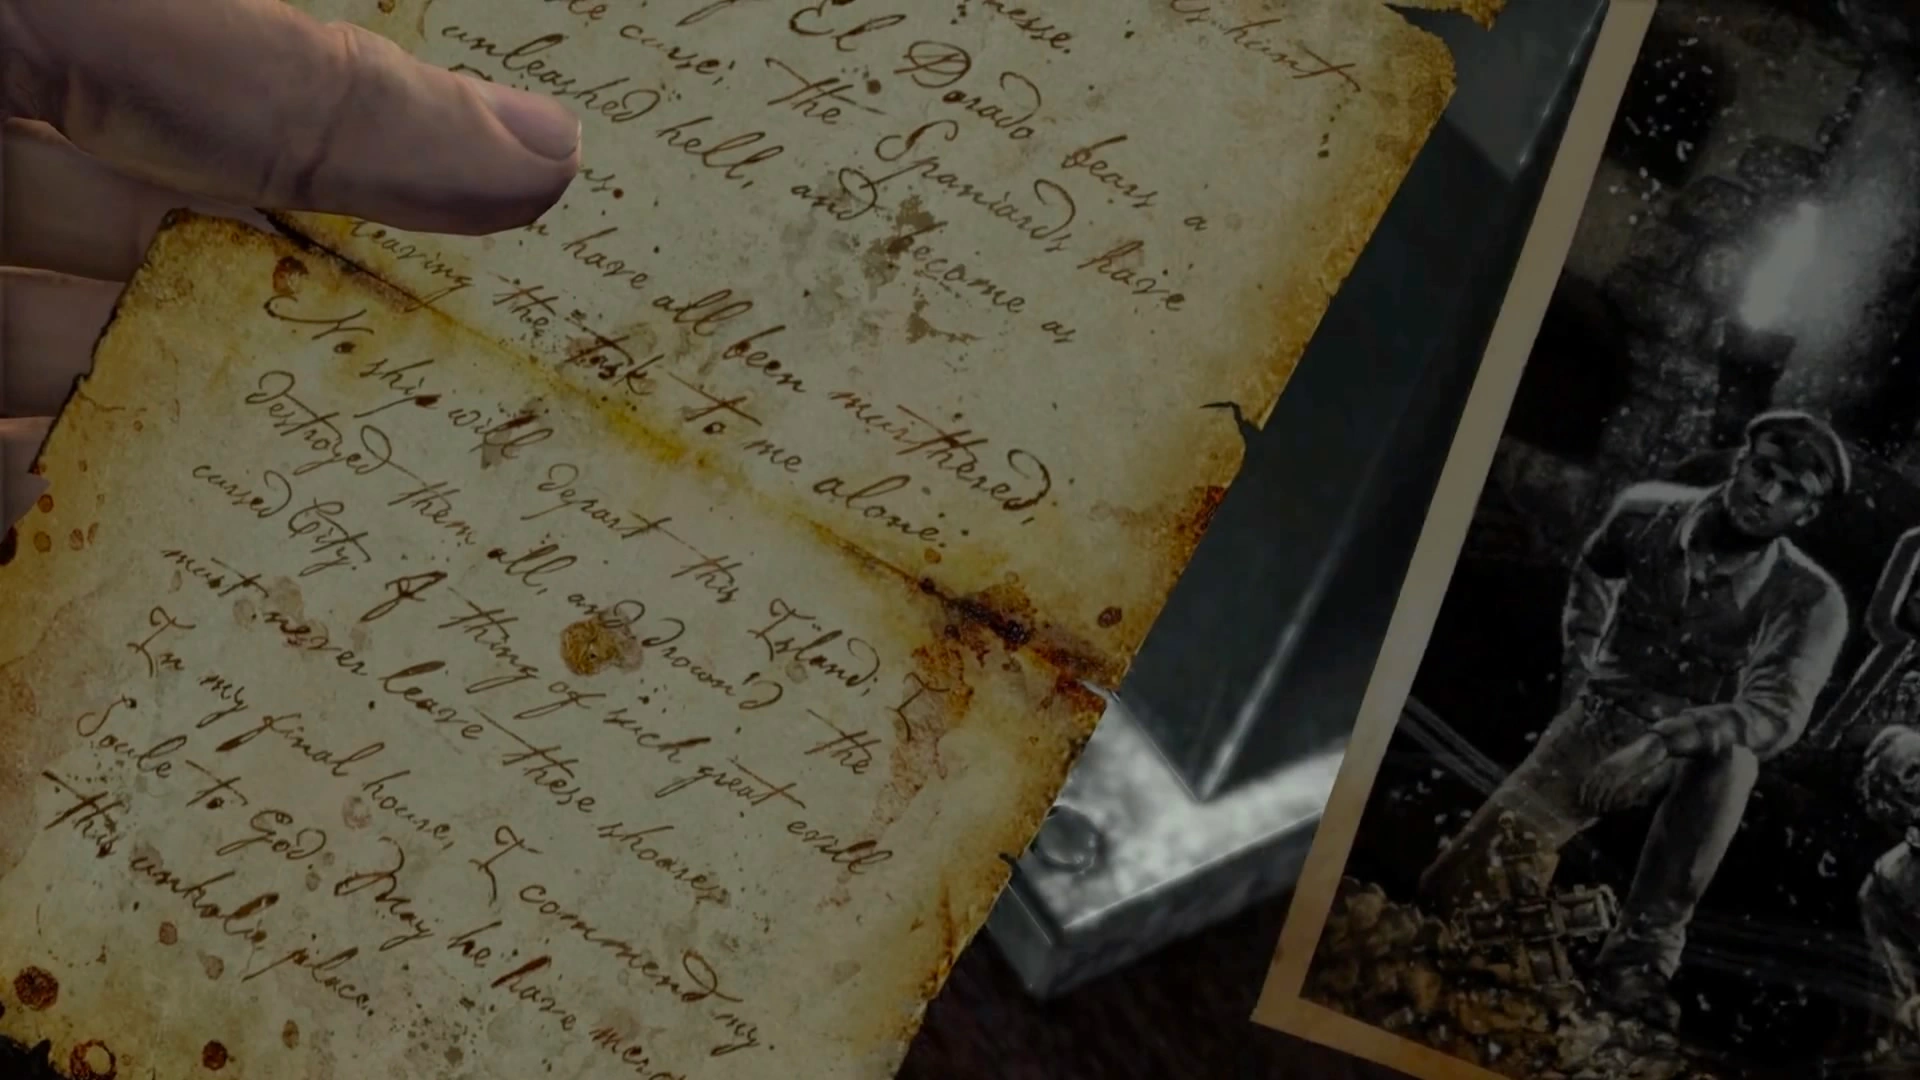 El Dorado bears a
curse; the Spaniards have
unleashed hell, and become as
have all been murthered,
leaving the task to me alone.
No ship will depart this Island; I
destroyed them all, and drown'd the
cursed City. A thing of such great evill
must never leave these shoares.
In my final houre, I commend my
Soule to God. May he have
this unholy place.